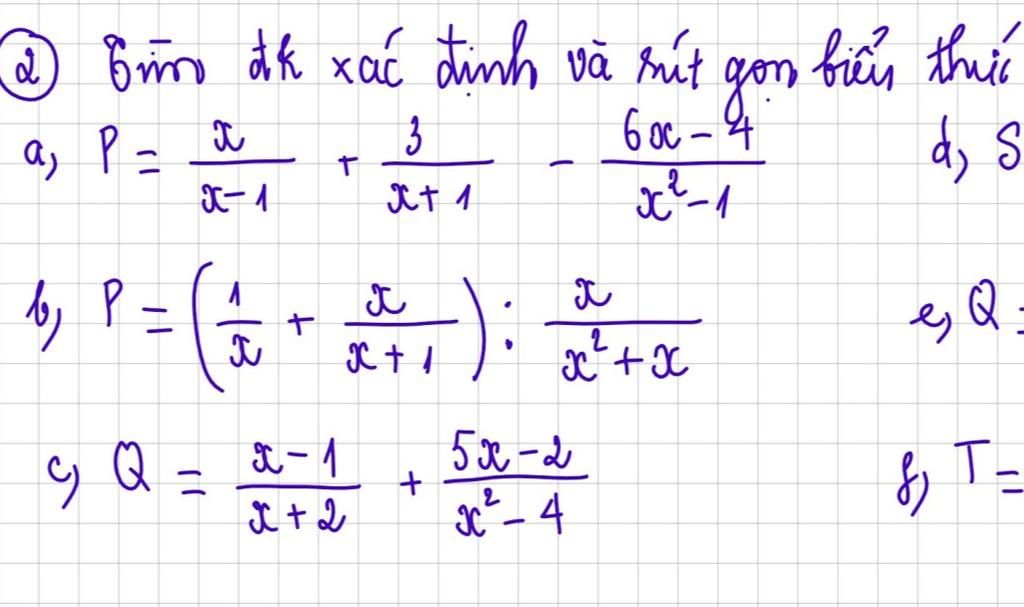 ② Tìm đk xác định và rút gọn biểu thức
a, P = x/(x-1) + 3/(x+1) - (6x-4)/(x²-1) d, S
b, P = (1/x + x/(x+1)) : x/(x²+x) e, Q =
c, Q = (x-1)/(x+2) + (5x-2)/(x²-4) f, T =